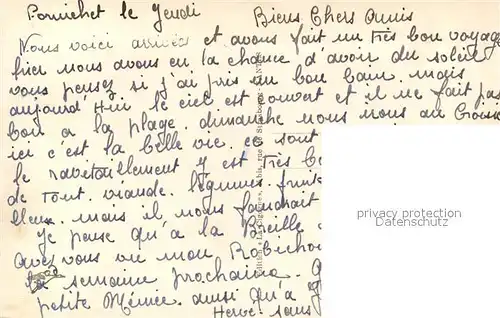 Pornichet le Jeudi Biens Chers Amis
Nous voici arrivés et avons fait un très bon voyage
hier nous avons eu la chance d'avoir du soleil
vous pensez si j'ai pris un bon bain. mais
aujourd'hui le ciel est couvert et il ne fait pas
bon a la plage. dimanche nous nous au
ici c'est la belle vie. ce sont
le ravitaillement y est très
de tout. viande. légumes. fruits
mais il nous faudrait
Je pense qu'a la
Avez vous vu mon
la semaine prochaine.
petite Mémée. ainsi qu'a
Hervé. sans
privacy protection
Datenschutz